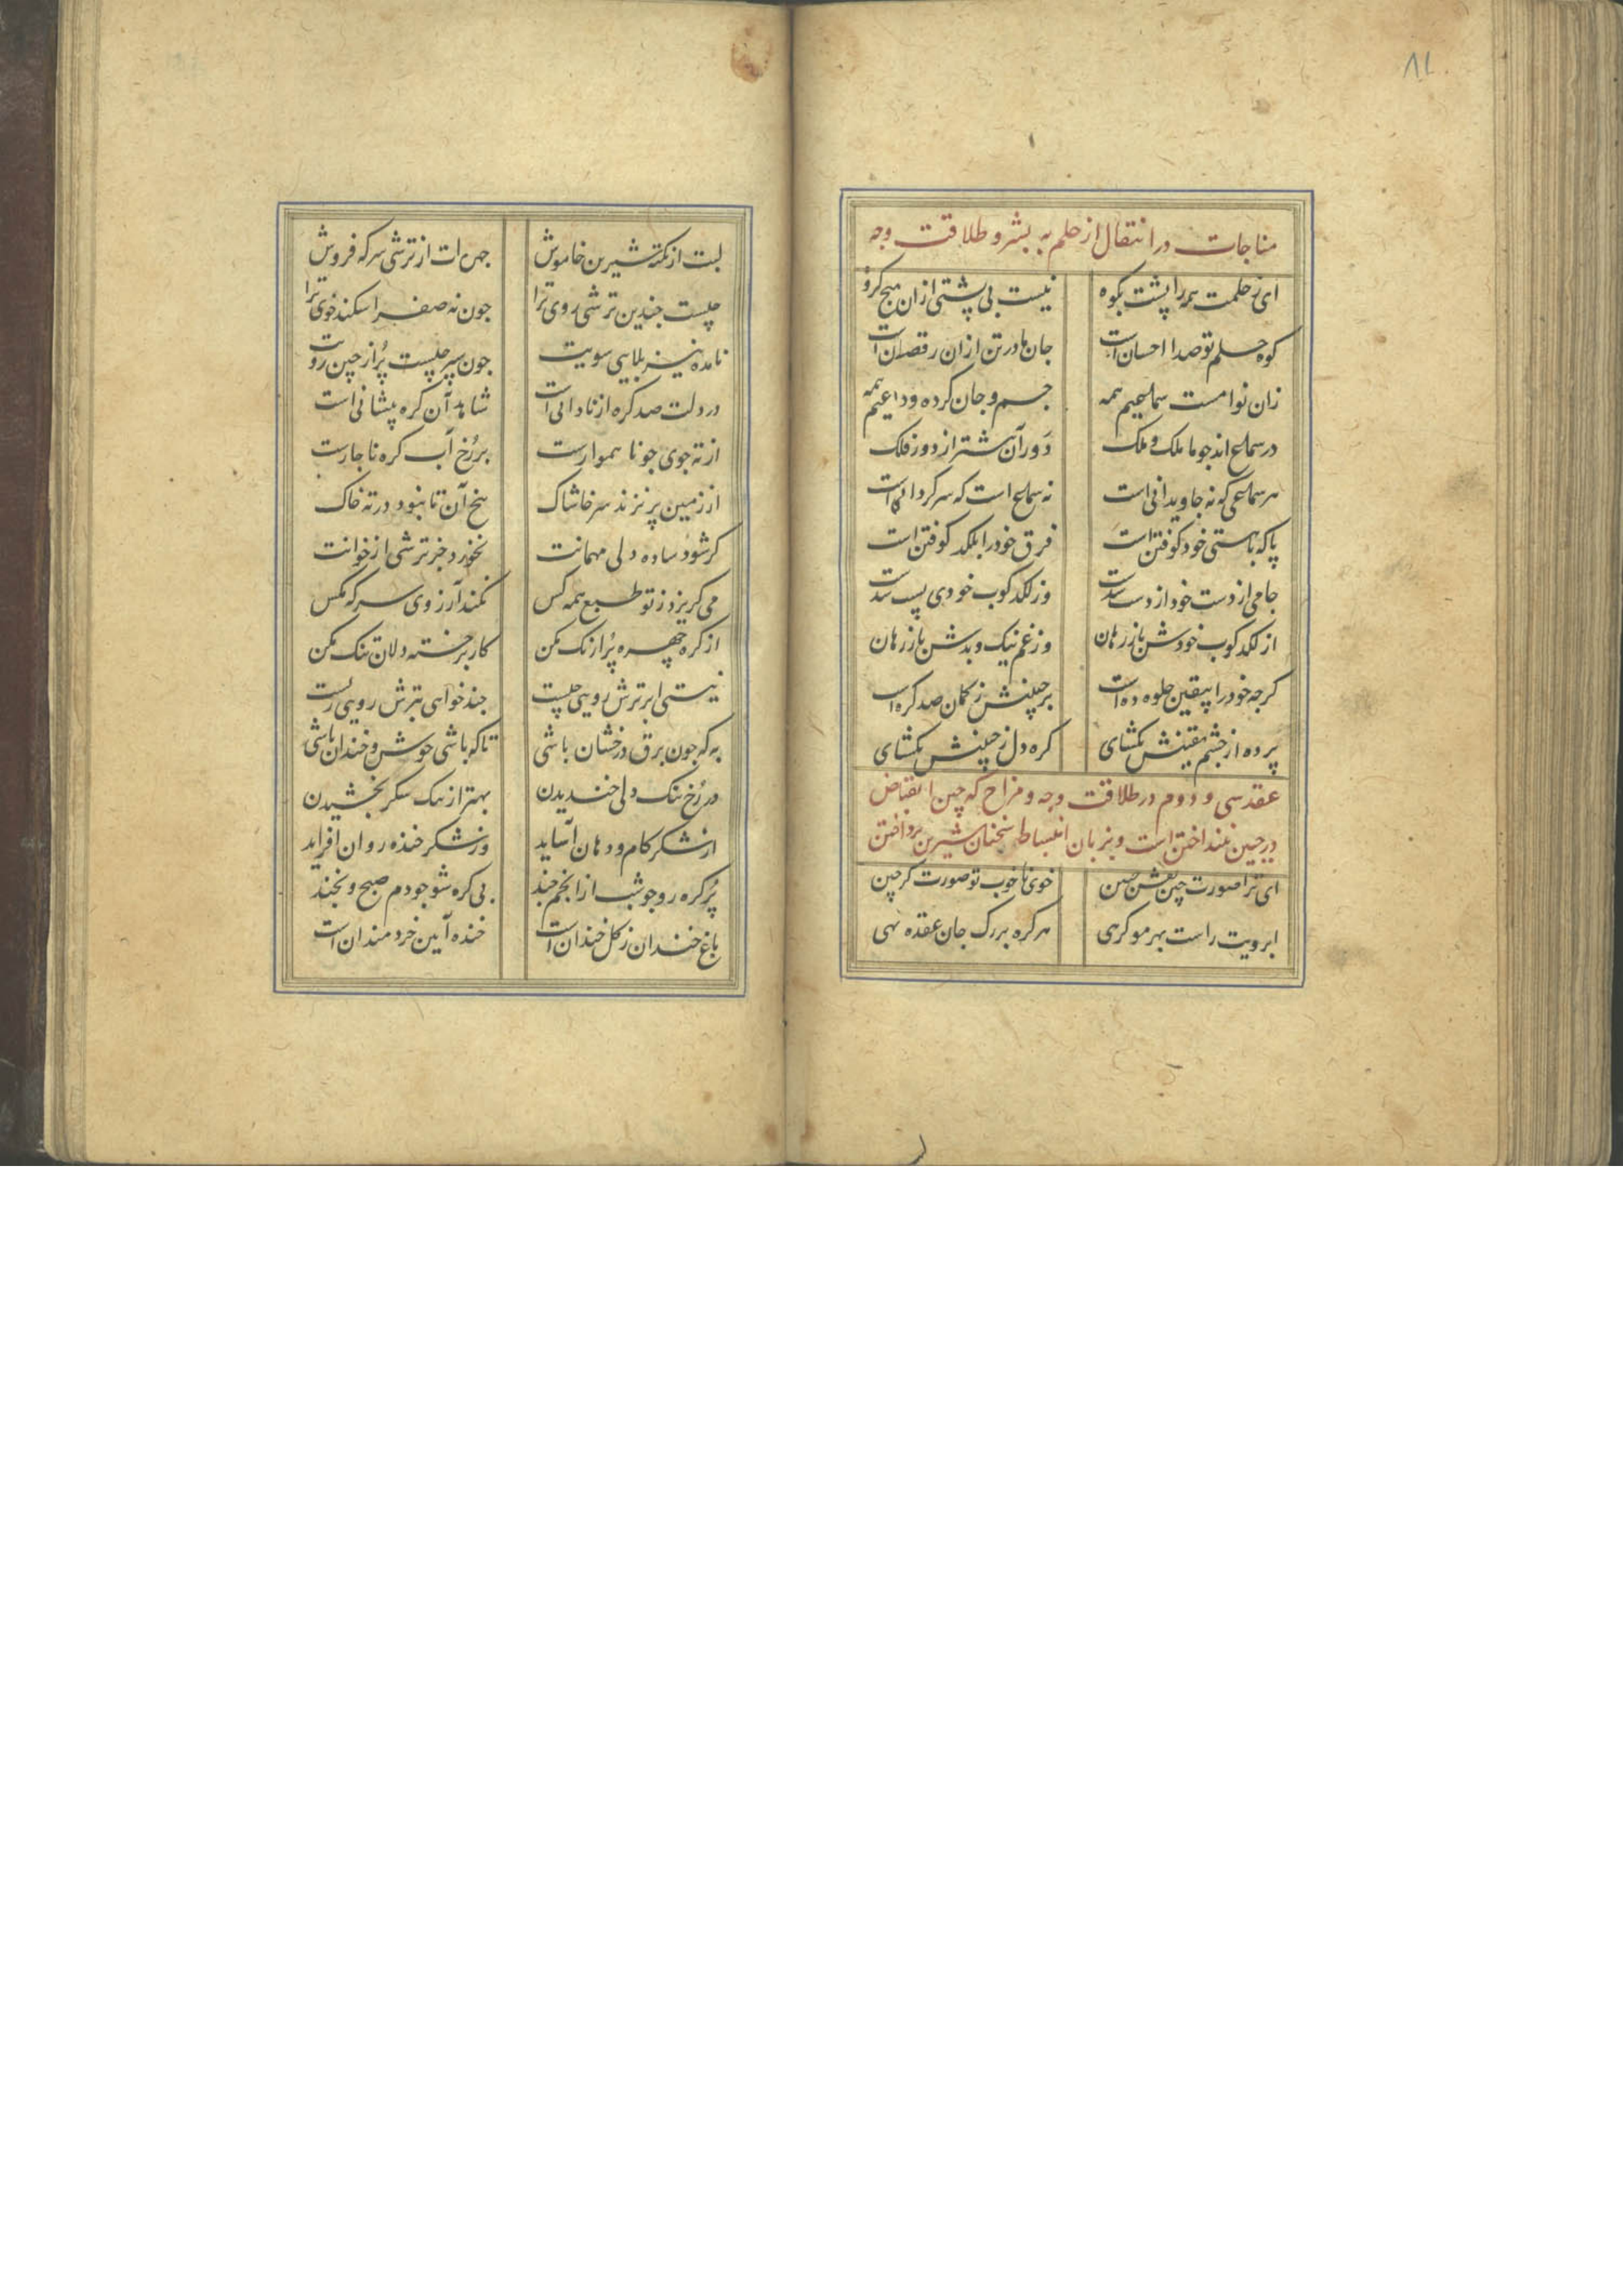 ۸۲
مناجات در انتقال از حلم به بشر و طلاقت وجه
ای ز حلمت همه را پشت بکوه نیست بی پشتی ازان هیچ کروه
کوه حلم تو صدا احسان است جان ها در تن ازان رقصان است
زان نوا مست سماعیم همه جسم و جان کرده وداعیم همه
در سماع اند جو ما ملک و ملک دور آن بیشتر از دور فلک
هر سماعی که نه جاویدانی است نه سماع است که سرکردانی است
پا که با هستی خود کوفتن است فرق خود را بلکد کوفتن است
جامی از دست خود از دست شدست وز لکدکوب خودی پست شدست
از لکدکوب خودش باز رهان وز غم نیک و بدش باز رهان
کرجه خود را بیقین جلوه ده است بر جبینش ز کمان صد کره است
پرده از جشم یقینش بکشای کره دل ز جبینش بکشای
عقد سی و دوم در طلاقت وجه و مزاح که چین انقباض
در جبین نینداختن است و بزبان انبساط سخنان شیرین پرداختن
ای ترا صورت چین نقش جبین خوی ناخوب تو صورت کر چین
ابرویت راست بهر مو کرهی هر کره بر رک جان عقده نهی
لبت از نکته شیرین خاموش جهره ات از ترشی سرکه فروش
چیست جندین ترشی روی ترا جون نه صفرا شکند خوی ترا
نامده تیر بلایی سویت جون سپر چیست پر از چین رویت
در دلت صد کره از نادانی است شاهد آن کره پیشانی است
از ته جوی جو ناهموارست بر رخ آب کره ناجارست
از زمین بر نزند سر خاشاک بیخ آن تا نبود در ته خاک
کر شود ساده دلی مهمانت نخورد جز ترشی از خوانت
می کریزد ز تو طبع همه کس نکند آرزوی سرکه مکس
از کره چهره پر آژنک مکن کار بر خسته دلان تنک مکن
نیستی ابر ترش رویی چیست جند خواهی بترش رویی زیست
به که جون برق درخشان باشی تا که باشی خوش و خندان باشی
در رخ تنک دلی خندیدن بهتر از تنک شکر بخشیدن
از شکر کام و دهان آساید وز شکر خنده روان افزاید
پر کره رو جو شب از انجم جند بی کره شو جو دم صبح و بخند
باغ خندان ز کل خندان است خنده آیین خردمندان است